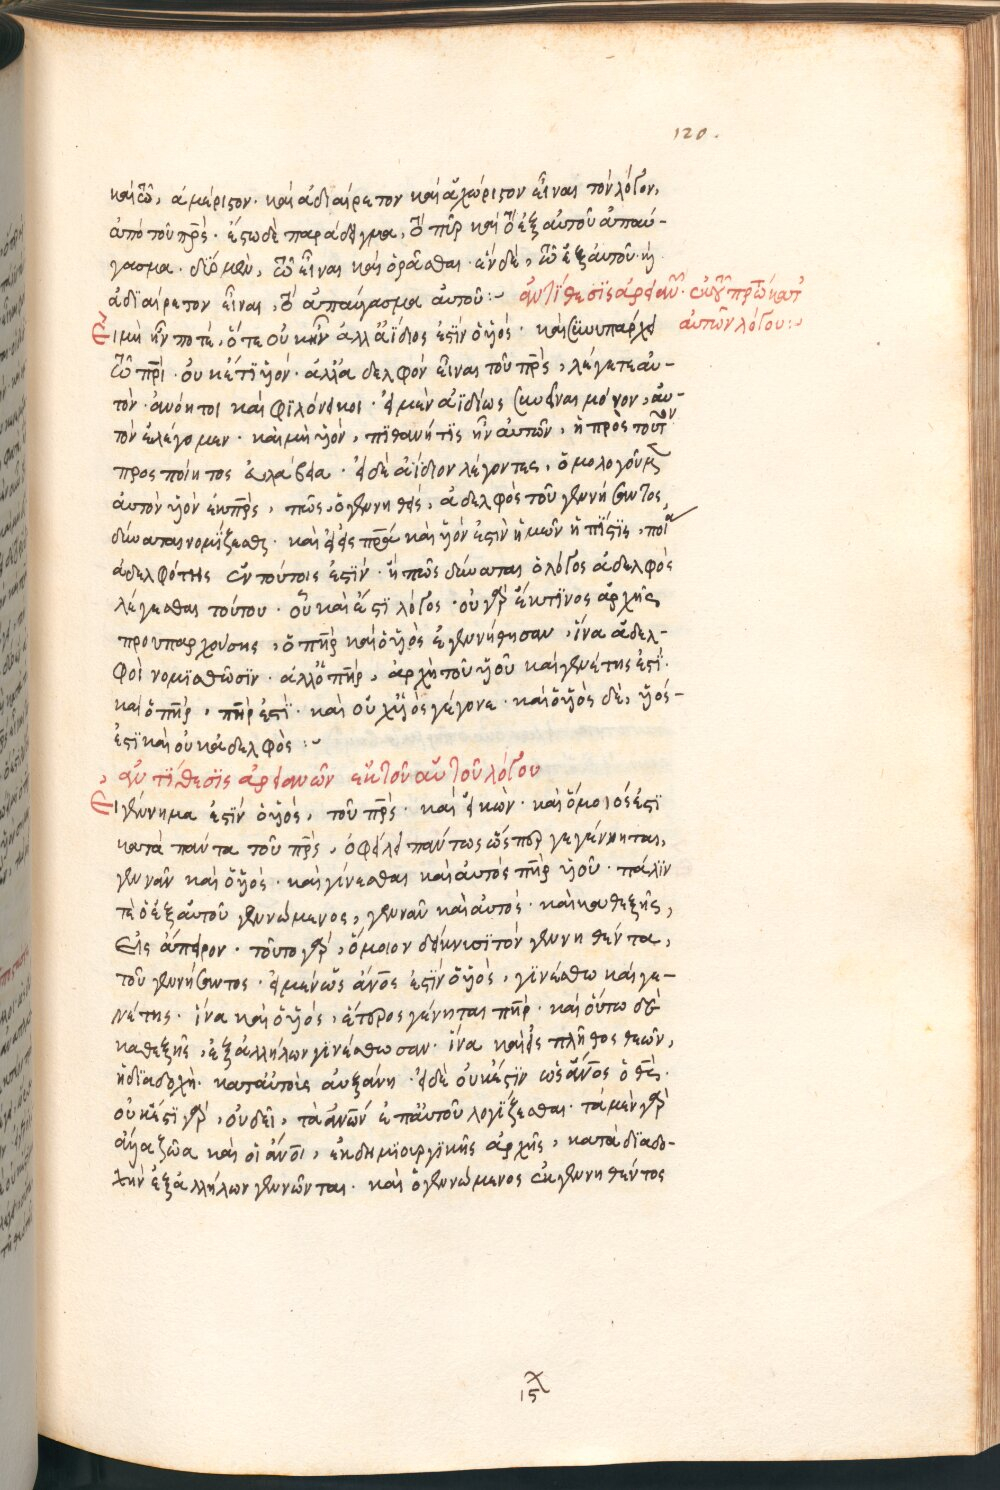 120.
ἀμέριστον· καὶ ἀδιαίρετον καὶ ἀχώριστον εἶναι τὸν λόγον,
ἀπὸ τοῦ πρς· ἔστω δὲ παράδειγμα, τὸ πῦρ καὶ τὸ ἐξ αὐτοῦ ἀπαύ-
γασμα· δύο μὲν, τῶ εἶναι καὶ ὁρᾶσθαι· ἓν δὲ, τῶ ἐξ αὐτοῦ κὶ
ἀδιαίρετον εἶναι, τὸ ἀπαύγασμα αὐτοῦ :~ ἀντίθεσις ἀρειαν·
Εἰ μὴ ἦν ποτὲ, ὅτε οὐκ ἦν ἀλλ ἀΐδιός ἐστιν ὁ υἱός· καὶ συνυπάρχει αὐτῶν λόγου :~
τῶ πρὶ· οὐκέτι υἱὸν· ἀλλὰ ἀδελφὸν εἶναι τοῦ πρς, λέγετε αὐ-
τὸν· ἀνόητοι καὶ φιλόνεικοι· εἰ μὲν ἀϊδίως συνεῖναι μόνον, αὐ-
τὸν ἐλέγομεν· καὶ μὴ υἱὸν, πιθανή τις ἦν αὐτῶν, ἡ πρὸς τοῦτον
προσποίητος εὐλάβεια· εἰ δὲ ἀΐδιον λέγοντες, ὁμολογοῦμεν
αὐτὸν υἱὸν ἐκ πρς, πῶς ὁ γεννηθεὶς, ἀδελφὸς τοῦ γεννήσαντος,
δύναται νομίζεσθαι· καὶ εἰ εἰς πρα καὶ υἱὸν ἐστὶν ἡμῶν ἡ πίστις, ποία
ἀδελφότης ἐν τούτοις ἐστίν· ἢ πῶς δύναται ὁ λόγος ἀδελφὸς
λέγεσθαι τούτου· οὗ καὶ ἔστι λόγος· οὐ γὰρ ἔκ τινος ἀρχῆς
προυπαρχούσης, ὁ πηρ καὶ ὁ υἱὸς ἐγεννήθησαν, ἵνα ἀδελ-
φοὶ νομισθῶσιν· ἀλλ ὁ πηρ, ἀρχὴ τοῦ υἱοῦ καὶ γεννέτης ἐστί·
καὶ ὁ πηρ, πηρ ἐστὶ· καὶ οὐχ υἱὸς γέγονε· καὶ ὁ υἱὸς δὲ, υἱός-
ἐστι καὶ οὐκ ἀδελφὸς :~
ἀντίθεσις ἀρειανῶν ἐκ τοῦ αὐτοῦ λόγου
Εἰ γέννημα ἐστίν ὁ υἱὸς, τοῦ πρς· καὶ εἰκὼν· καὶ ὅμοιός ἐστι
κατὰ πάντα τοῦ πρς, ὀφείλει πάντως ὥσπερ γεγέννηται,
γεννᾶν καὶ ὁ υἱὸς· καὶ γίνεσθαι καὶ αὐτὸς πηρ υἱοῦ· πάλιν
τὲ ὁ ἐξ αὐτοῦ γεννώμενος, γεννᾶν καὶ αὐτὸς· καὶ καθεξῆς,
εἰς ἄπειρον· τοῦτο γὰρ, ὅμοιον δείκνυσι τὸν γεννηθέντα,
τοῦ γεννήσαντος· εἰ μὲν ὡς ἀνος ἐστίν ὁ υἱὸς, γινέσθω καὶ γε-
νέτης· ἵνα καὶ ὁ υἱὸς, ἑτέρου γένηται πηρ· καὶ οὕτω
καθεξῆς, ἐξ ἀλλήλων γινέσθωσαν· ἵνα καὶ εἰς πλῆθος θεῶν,
ἡ διαδοχὴ κατ αὐτοὺς αὐξάνη· εἰ δὲ οὐκ ἐστὶν ὡς ἀνος ὁ θς·
οὐκ ἔστι γὰρ, οὐ δεῖ, τὰ ἀνων ἐπ αὐτοῦ λογίζεσθαι· τὰ μὲν γὰρ
ἄλλα ζῶα καὶ οἱ ἀνοι, ἐκ δημιουργικῆς ἀρχῆς, κατὰ διαδο-
χὴν ἐξ ἀλλήλων γεννῶνται· καὶ ὁ γεννώμενος ἐκ γεννηθέντος
15